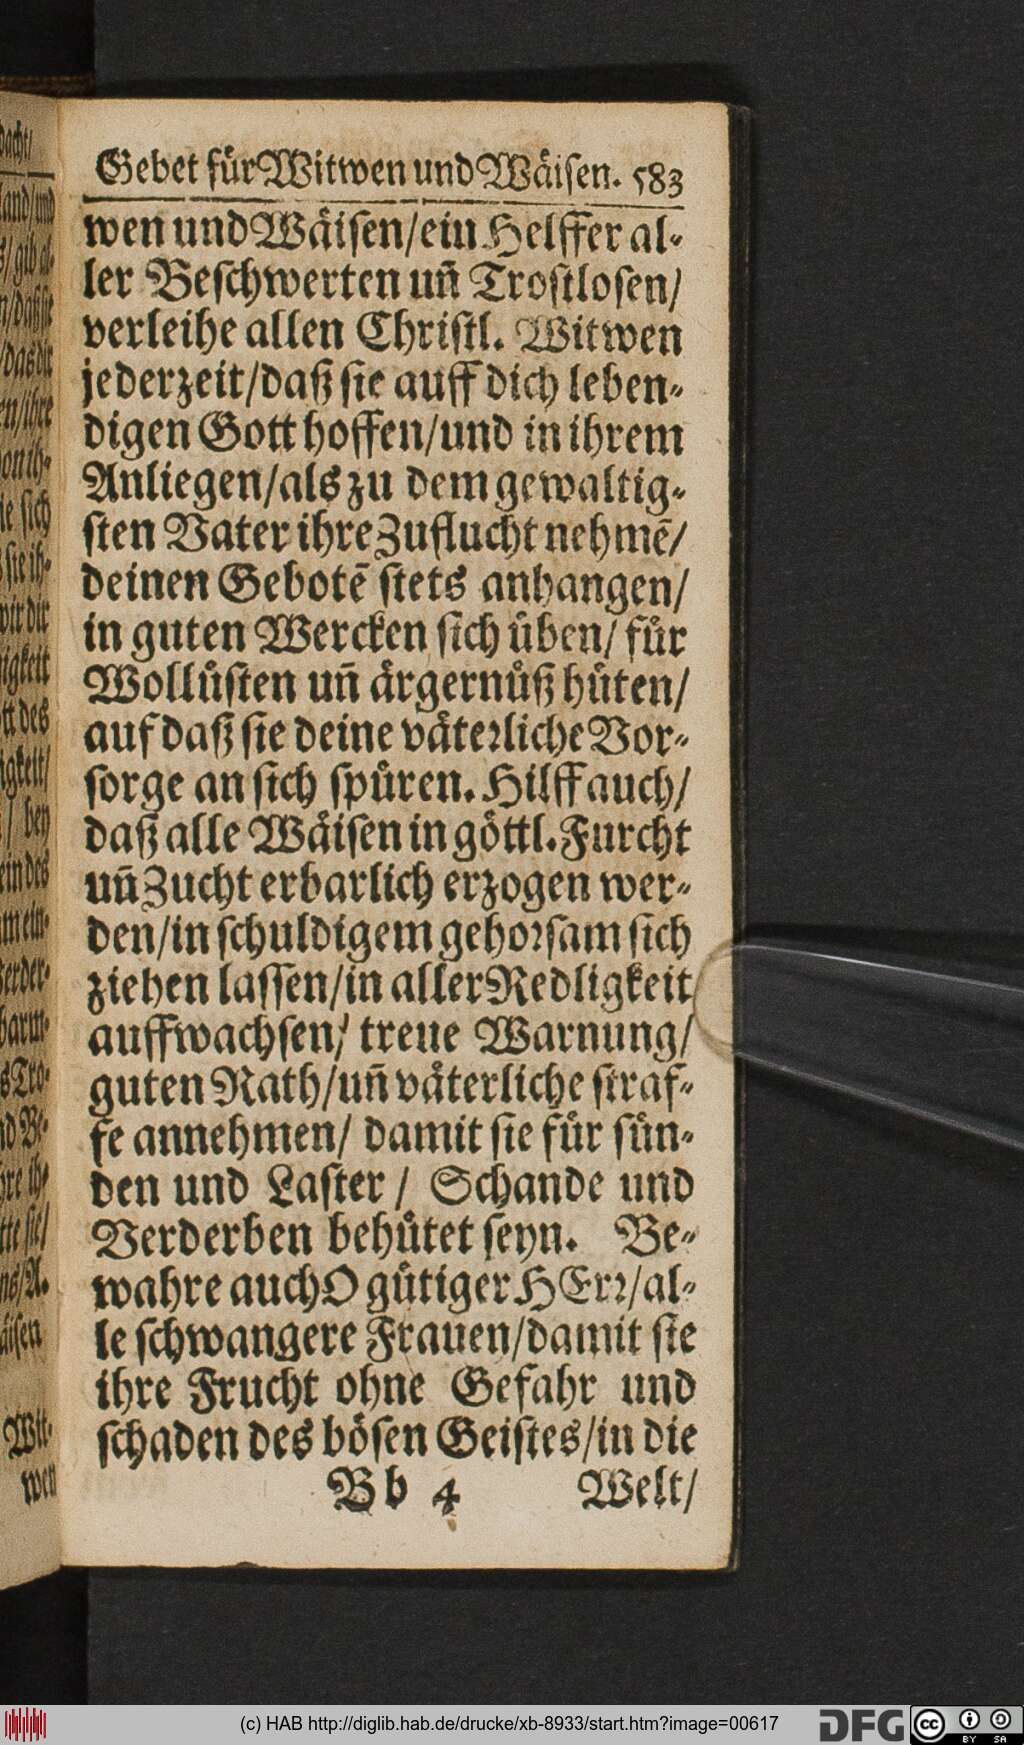 Gebet fuͤr Witwen und Waͤisen. 583
wen und Waͤisen/ein Helffer al-
ler Beschwerten uñ Trostlosen/
verleihe allen Christl. Witwen
jederzeit/daß sie auff dich leben-
digen Gott hoffen/und in ihrem
Anliegen/als zu dem gewaltig-
sten Vater ihre Zuflucht nehmē/
deinen Gebotē stets anhangen/
in guten Wercken sich uͤben/ fuͤr
Wolluͤsten uñ aͤrgernuͤß huͤten/
auf daß sie deine vaͤterliche Vor-
sorge an sich spuͤren. Hilff auch/
daß alle Waͤisen in goͤttl. Furcht
uñ Zucht erbarlich erzogen wer-
den/in schuldigem gehorsam sich
ziehen lassen/in aller Redligkeit
auffwachsen/ treue Warnung/
guten Rath/uñ vaͤterliche straf-
fe annehmen/ damit sie fuͤr suͤn-
den und Laster/ Schande und
Verderben behuͤtet seyn. Be-
wahre auch O guͤtiger HErr/al-
le schwangere Frauen/damit sie
ihre Frucht ohne Gefahr und
schaden des boͤsen Geistes/in die
Bb 4 Welt/
(c) HAB http://diglib.hab.de/drucke/xb-8933/start.htm?image=00617
DFG cc BY SA